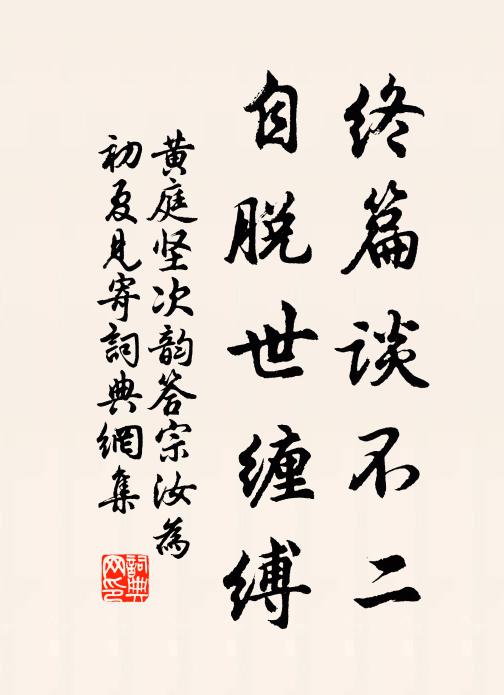 终篇谈不二
自脱世缠缚
黄庭坚次韵答宗汝为
初夏见寄詞典網集
詞典
网印